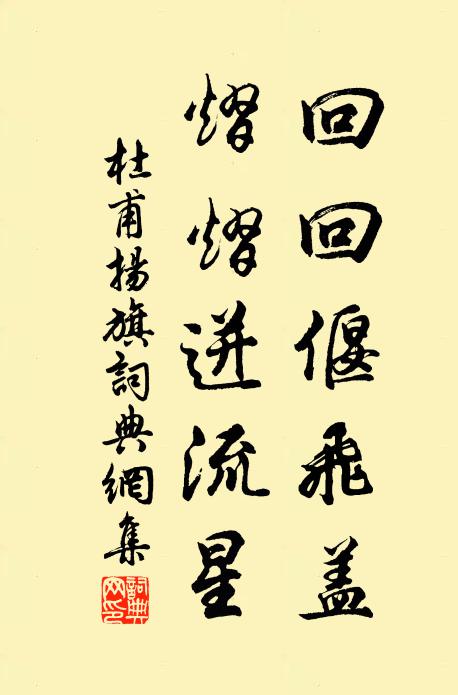 回回偃飛盖
熠熠迸流星
杜甫揚旗詞典網集
詞典